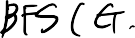 BFS ( G.